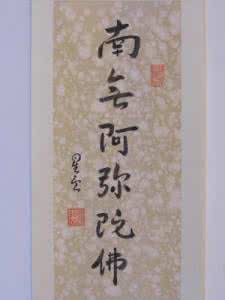 南無阿弥陀佛
星云